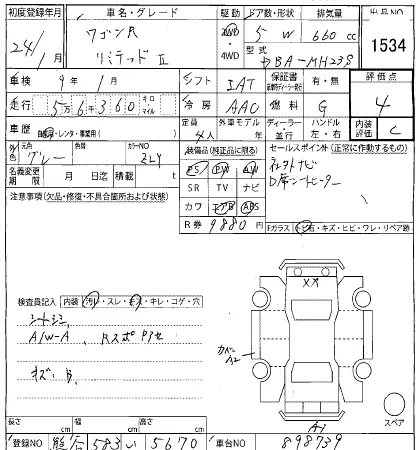 初度登録年月 車名・グレード 駆動 ドア数・形状 排気量 出品NO
24年 1月 ワゴンR リミテッドⅡ 2WD・4WD 5 W 660 cc 1534
型式 DBA-MH23S
車検 9年 1月 シフト IAT 保証書 有・無 評価点
走行 5万6千360 キロ・マイル 冷房 AAC 燃料 G 4
車歴 自家・レンタ・事業用( ) 定員 4人 外車モデル 年 ディーラー・並行 ハンドル 左・右 内装評価 C
外色 元色 グレー 色替 カラーNO ZLY
装備品(純正品に限る) セールスポイント(正常に作動するもの)
名義変更期限 月 日迄 積載 t
PS PW
SR TV ナビ
カワ エアB ABS
R券 9880円
社外ナビ
D席シートヒーター
注意事項(欠品・修復・不具合箇所および状態)
Fガラス(トビ石・キズ・ヒビ・ワレ・リペア)跡
検査員記入 内装(汚レ・スレ・キス・キレ・コゲ・穴
シートシミ
A/W-A、
キズ
XX
カバー A2
A1
スペア
長さ cm 幅 cm 高さ cm
登録NO 熊本 583 い 5670 車台NO 898739